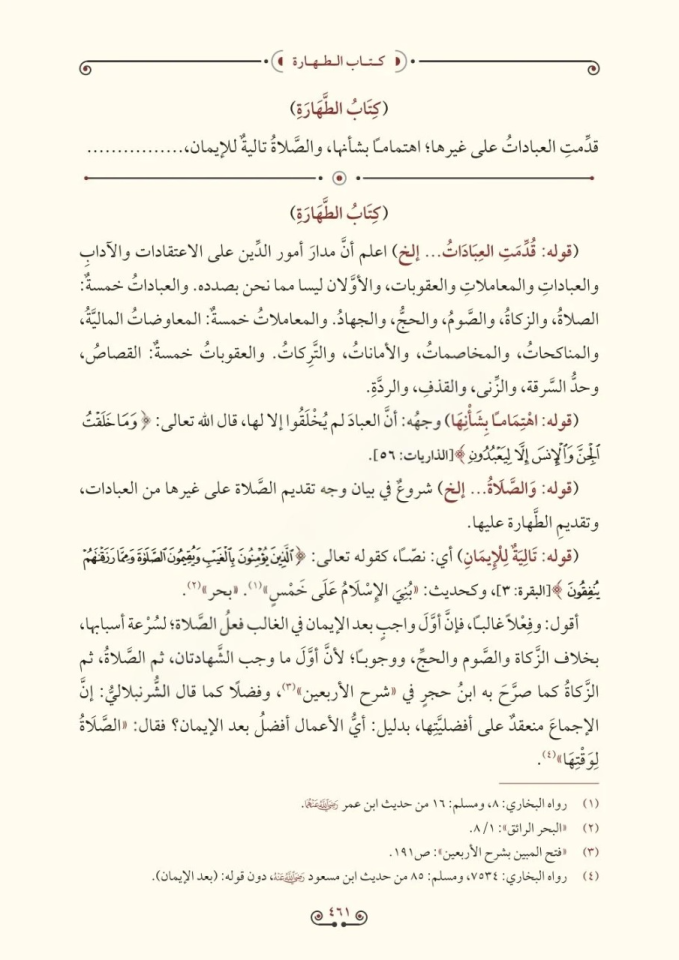 كتاب الطهارة
(كِتَابُ الطَّهَارَةِ)
قدِّمتِ العباداتُ على غيرها؛ اهتمامـًا بشأنها، والصَّلاةُ تاليةٌ للإيمان،................
(كِتَابُ الطَّهَارَةِ)
(قوله: قُدِّمَتِ العِبَادَاتُ... إلخ) اعلم أنَّ مدارَ أمور الدِّين على الاعتقادات والآدابِ
والعباداتِ والمعاملاتِ والعقوبات، والأوَّلان ليسا مما نحن بصدده. والعباداتُ خمسةٌ:
الصلاةُ، والزكاةُ، والصَّومُ، والحجُّ، والجهادُ. والمعاملاتُ خمسةٌ: المعاوضاتُ الماليَّةُ،
والمناكحاتُ، والمخاصماتُ، والأماناتُ، والتَّرِكاتُ. والعقوباتُ خمسةٌ: القصاصُ،
وحدُّ السَّرقة، والزِّنى، والقذفِ، والردَّةِ.
(قوله: اهْتِمَامـًا بِشَأْنِهَا) وجهُه: أنَّ العبادَ لم يُخْلَقُوا إلا لها، قال الله تعالى: ﴿ وَمَا خَلَقْتُ
ٱلْجِنَّ وَٱلْإِنسَ إِلَّا لِيَعْبُدُونِ ﴾[الذاريات: ٥٦].
(قوله: وَالصَّلَاةُ... إلخ) شروعٌ في بيان وجه تقديم الصَّلاة على غيرها من العبادات،
وتقديمِ الطَّهارة عليها.
(قوله: تَالِيَةٌ لِلْإِيمَانِ) أي: نصّـًا، كقوله تعالى: ﴿ ٱلَّذِينَ يُؤْمِنُونَ بِٱلْغَيْبِ وَيُقِيمُونَ ٱلصَّلَوٰةَ وَمِمَّا رَزَقْنَٰهُمْ
يُنفِقُونَ ﴾[البقرة: ٣]، وكحديث: «بُنِيَ الإِسْلَامُ عَلَى خَمْسٍ»(١). «بحر»(٢).
أقول: وفِعْلاً غالبـًا، فإنَّ أوَّلَ واجبٍ بعد الإيمان في الغالب فعلُ الصَّلاة؛ لسُرْعة أسبابها،
بخلاف الزَّكاة والصَّوم والحجِّ، ووجوبـًا؛ لأنَّ أوَّلَ ما وجب الشَّهادتان، ثم الصَّلاةُ، ثم
الزَّكاةُ كما صرَّحَ به ابنُ حجرٍ في «شرح الأربعين»(٣)، وفضلًا كما قال الشُّرنبلاليُّ: إنَّ
الإجماعَ منعقدٌ على أفضليَّتِها، بدليل: أيُّ الأعمال أفضلُ بعد الإيمان؟ فقال: «الصَّلَاةُ
لِوَقْتِهَا»(٤).
(١) رواه البخاري: ٨، ومسلم: ١٦ من حديث ابن عمر رضي الله عنهما.
(٢) «البحر الرائق»: ١/ ٨.
(٣) «فتح المبين بشرح الأربعين»: ص١٩١.
(٤) رواه البخاري: ٧٥٣٤، ومسلم: ٨٥ من حديث ابن مسعود رضي الله عنه، دون قوله: (بعد الإيمان).
٤٦١